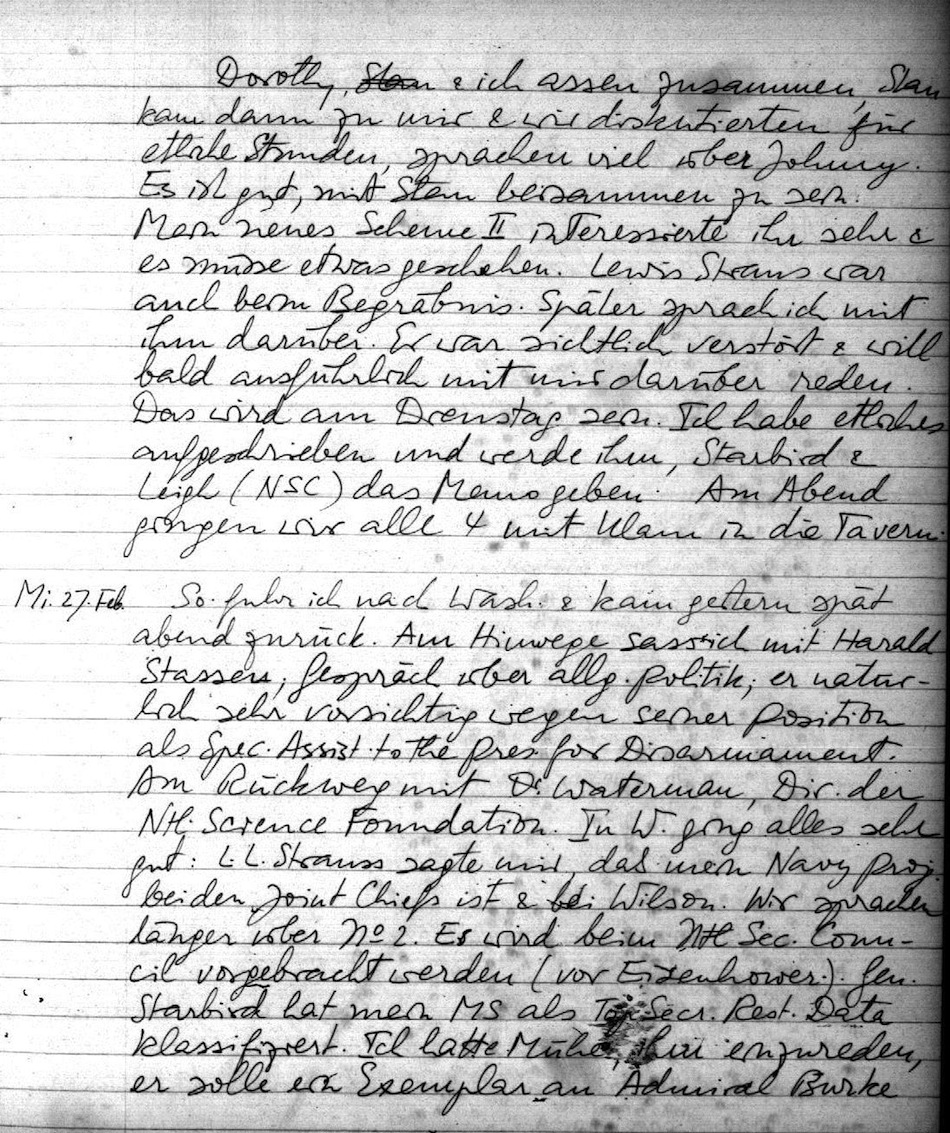 Dorothy, Stan & ich assen zusammen, Stan
kam dann zu mir & wir diskutierten für
etliche Stunden, sprachen viel über Johnny.
Es ist gut, mit Stan beisammen zu sein.
Mein neues Scheme II interessierte ihn sehr &
es müsse etwas geschehen. Lewis Straus war
auch beim Begräbnis. Später sprach ich mit
ihm darüber. Er war sichtlich verstört & will
bald ausführlich mit mir darüber reden.
Das wird am Dienstag sein. Ich habe etliches
aufgeschrieben und werde ihm, Starbird &
Leigh (NSC) das Memo geben. Am Abend
gingen wir alle 4 mit Ulam in die Tavern.
Mi. 27. Feb. So fuhr ich nach Wash. & kam gestern spät
abend zurück. Am Hinwege sass ich mit Harald
Stassen; Gespräch über allg. Politik; er natür-
lich sehr vorsichtig wegen seiner Position
als Spec. Assist. to the Pres. for Disarmament.
Am Rückweg mit Dr Waterman, Dir. der
Ntl. Science Foundation. In W. ging alles sehr
gut: L.L. Strauss sagte mir, das mein Navy Proj.
bei den Joint Chiefs ist & bei Wilson. Wir sprachen
länger über No 2. Es wird beim Ntl Sec. Coun-
cil vorgebracht werden (vor Eisenhower.). Gen.
Starbird hat mein MS als Top Secr. Rest. Data
klassifiziert. Ich hatte Mühe, ihm einzureden,
er solle ein Exemplar an Admiral Burke